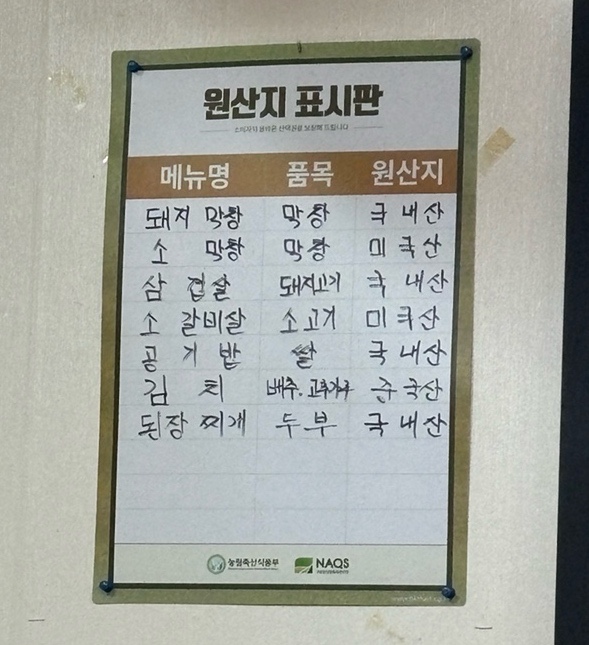 원산지 표시판
소비자의 올바른 선택권을 보장해 드립니다
메뉴명 품목 원산지
돼지 막창 막창 국내산
소 막창 막창 미국산
삼겹살 돼지고기 국내산
소 갈비살 소고기 미국산
공기밥 쌀 국내산
김치 배추, 고추가루 중국산
된장 찌개 두부 국내산
농림축산식품부 NAQS